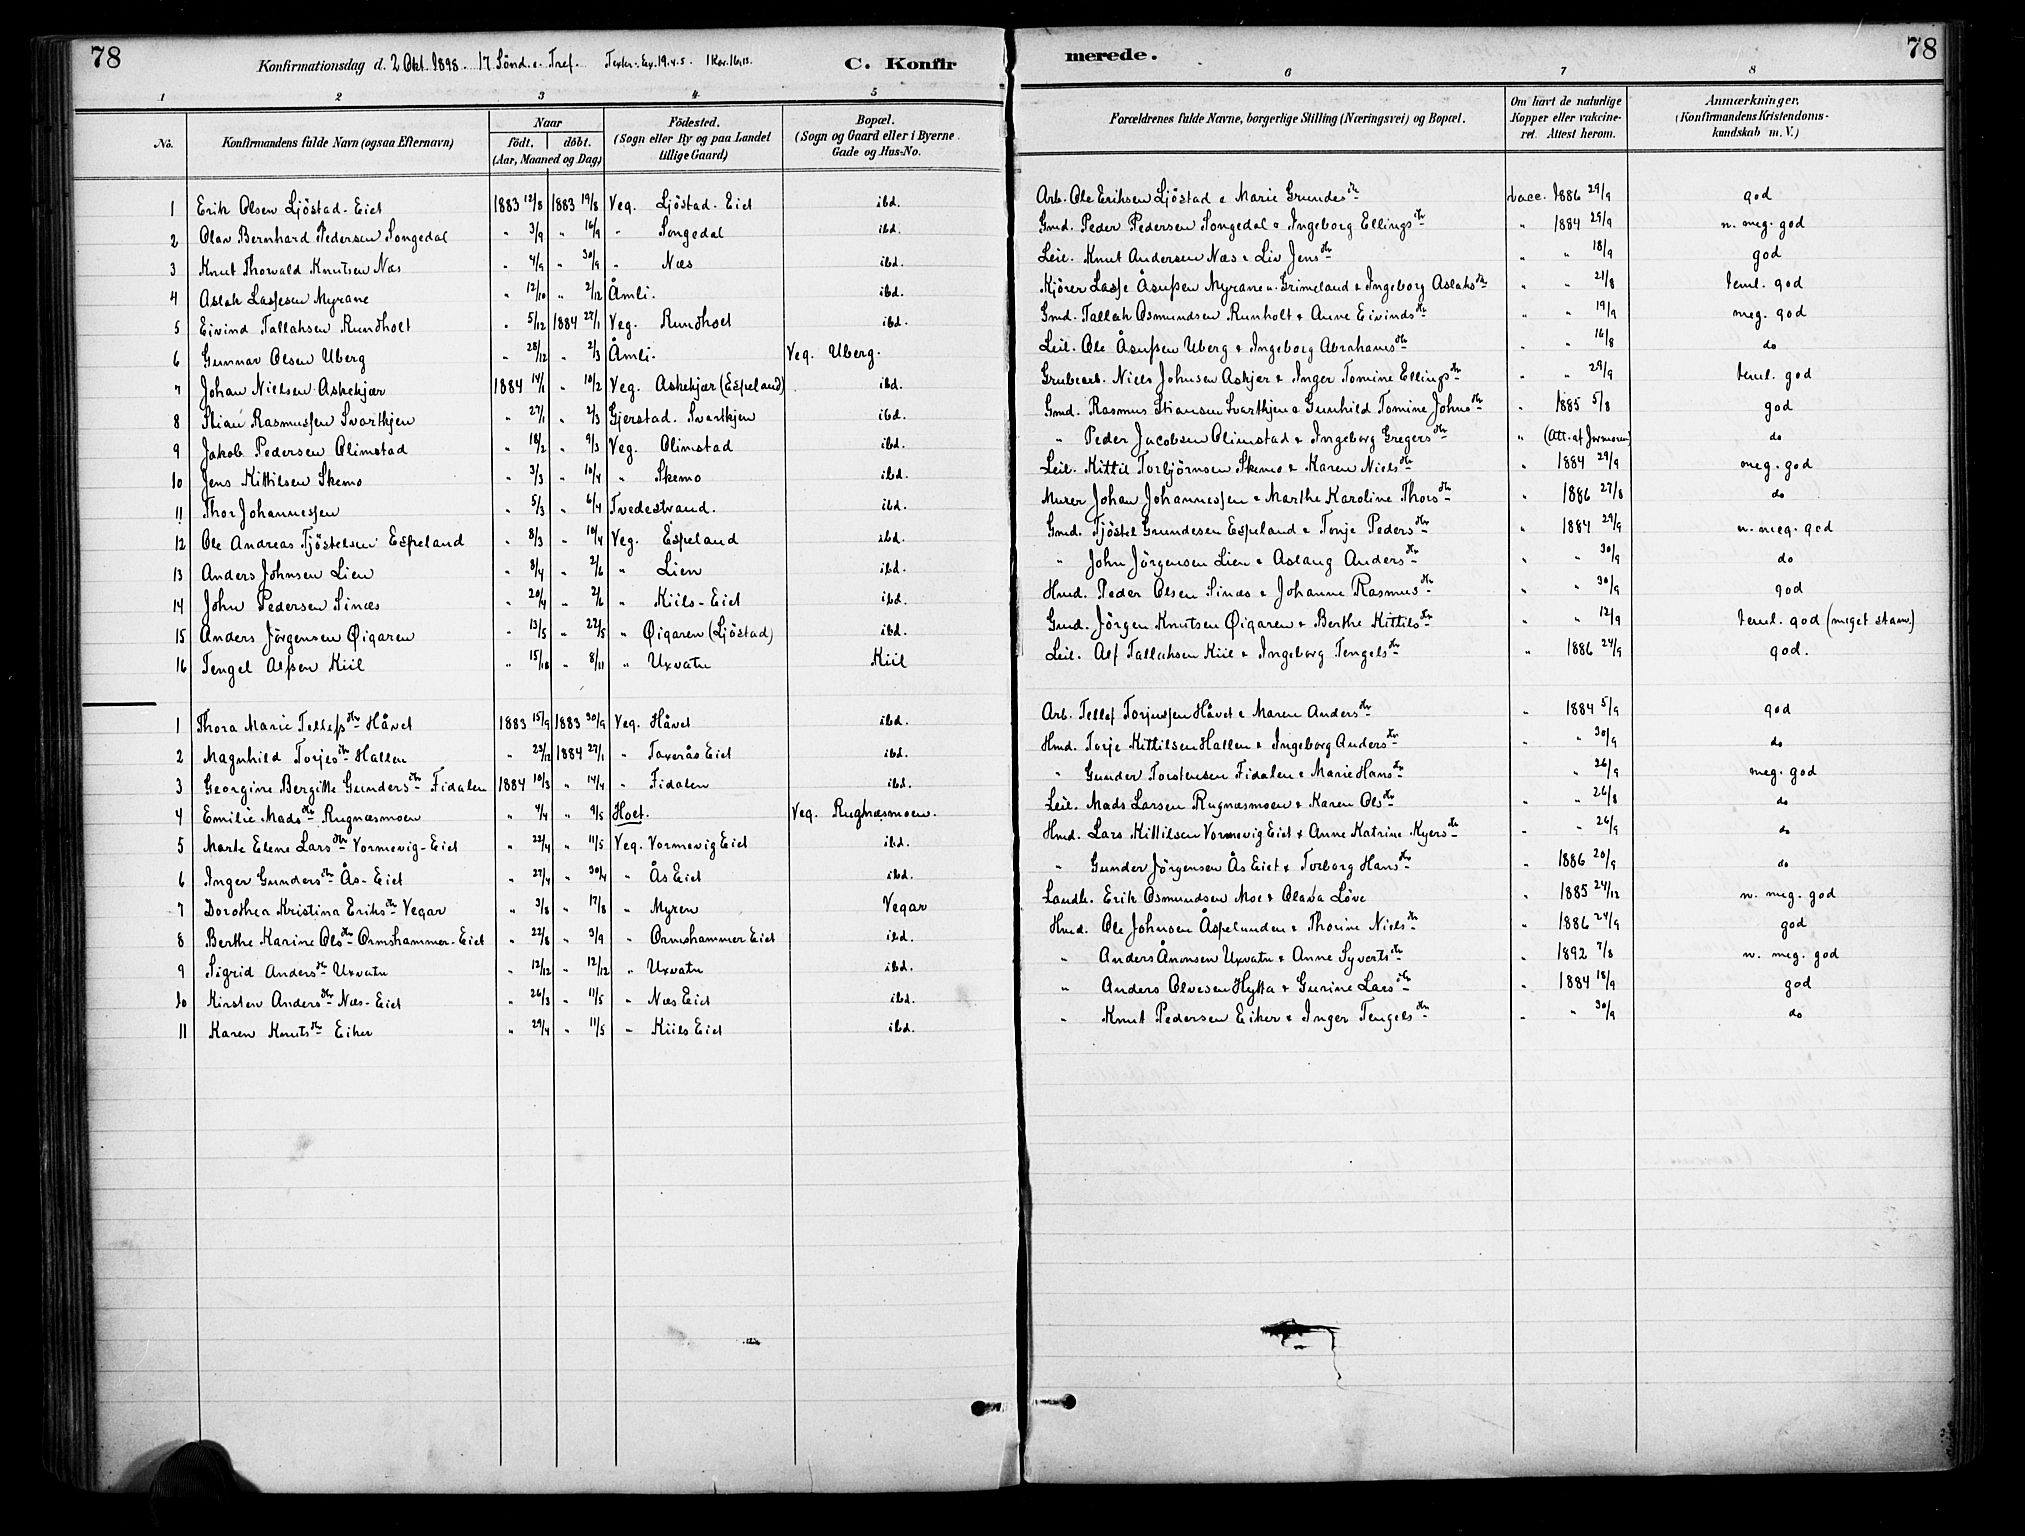 78
Konfirmationsdag d. 2 Okt. 1898. 17 Sönd. e. Tref. Texter. Ex. 19.4.5. 1 Kor. 16.13.
C. Konfirmerede.
78
1 2 3 4 5 6 7 8
No. Konfirmandens fulde Navn (ogsaa Efternavn) Naar födt. döbt. (Aar, Maaned og Dag) Födested. (Sogn eller By og paa Landet tillige Gaard) Bopæl. (Sogn og Gaard eller i Byerne Gade og Hus-No. Forældrenes fulde Navne, borgerlige Stilling (Næringsvei) og Bopæl. Om havt de naturlige Kopper eller vakcineret. Attest herom. Anmærkninger, (Konfirmandens Kristendomskundskab m. V.)
1 Erik Olsen Ljöstad-Eiet 1883 12/8 1883 19/8 Veg. Ljöstad-Eiet ibd. Arb. Ole Eriksen Ljöstad & Marie Grundesdtr vacc. 1886 29/9 god
2 Olav Bernhard Pedersen Songedal " 3/9 " 16/9 " Songedal ibd. Gmd. Peder Pedersen Songedal & Ingeborg Ellingsdtr " 1884 29/9 n. meg. god
3 Knut Thorvald Knutsen Næs " 4/9 " 30/9 " Næs ibd. Leil. Knut Andersen Næs & Liv Jensdtr " " 18/9 god
4 Aslak Lassesen Myrane " 12/10 " 2/12 Åmli. ibd. Kjörer Lasse Åsulsen Myrane u. Grimeland & Ingeborg Aslaksdtr " " 21/8 teml. god
5 Eivind Tallaksen Rundholt " 5/12 1884 27/1 Veg. Rundholt ibd. Gmd. Tallak Osmundsen Runholt & Anne Eivindsdtr " " 19/9 meg. god
6 Gunnar Olsen Uberg " 28/12 " 2/3 Åmli. Veg. Uberg. Leil. Ole Åsulsen Uberg & Ingeborg Abrahamsdtr " " 16/8 do
7 Johan Nielsen Askekjær 1884 14/1 " 10/2 Veg. Askekjær (Espeland) ibd. Grubearb. Niels Johnsen Askjær & Inger Tomine Ellingsdtr " " 29/9 teml. god
8 Stian Rasmussen Svartkjen " 27/1 " 2/3 Gjerstad. Svartkjen ibd. Gmd. Rasmus Stiansen Svartkjen & Gunhild Tomine Johnsdtr " 1885 5/8 god
9 Jakob Pedersen Olimstad " 18/2 " 9/3 Veg. Olimstad ibd. " Peder Jacobsen Olimstad & Ingeborg Gregersdtr " (Att. af Jormoren) do
10 Jens Kittilsen Skemo " 3/3 " 10/4 " Skemo ibd. Leil. Kittil Torbjörnsen Skemo & Karen Nielsdtr " 1884 29/9 meg. god
11 Thor Johannessen " 5/3 " 6/4 Tvedestrand. ibd. Murer Johan Johannessen & Marthe Karoline Thorsdtr " 1886 27/8 do
12 Ole Andreas Tjöstelsen Espeland " 8/3 " 10/4 Veg. Espeland ibd. Gmd. Tjöstel Grundesen Espeland & Tonje Pedersdtr " 1884 29/9 n. meg. god
13 Anders Johnsen Lien " 8/4 " 2/6 " Lien ibd. " John Jörgensen Lien & Aslaug Andersdtr " " 30/9 do
14 John Pedersen Sinæs " 20/4 " 2/6 " Kiils-Eiet ibd. Hmd. Peder Olsen Sinæs & Johanne Rasmusdtr " " 30/9 god
15 Anders Jörgensen Øigaren " 13/5 " 22/5 " Øigaren (Ljöstad) ibd. Gmd. Jörgen Knutsen Øigaren & Berthe Kittilsdtr " " 12/9 teml. god (meget stam.)
16 Tengel Alfsen Kiil " 15/10 " 8/11 " Uxvatn Kiil Leil. Alf Tallaksen Kiil & Ingeborg Tengelsdtr " 1886 24/9 god.
1 Thora Marie Tellefsdtr Håvet 1883 15/9 1883 30/9 Veg. Håvet ibd. Arb. Tellef Torjussen Håvet & Maren Andersdtr " 1884 5/9 god
2 Magnhild Torjesdtr Hallen " 23/12 1884 27/1 " Taxerås Eiet ibd. Hmd. Torje Kittilsen Hallen & Ingeborg Andersdtr " " 30/9 do
3 Georgine Bergitte Gundersdtr Fidalen 1884 10/3 " 14/4 " Fidalen ibd. " Gunder Torstensen Fidalen & Marie Hansdtr " 26/9 meg. god
4 Emilie Madsdtr Rugnæsmoen " 4/4 " 9/5 Holt. Veg. Rugnæsmoen. Leil. Mads Larsen Rugnæsmoen & Karen Olsdtr " " 26/8 do
5 Marte Elene Larsdtr Vormevig-Eiet " 22/4 " 11/5 Veg. Vormevig Eiet ibd. Hmd. Lars Kittilsen Vormevig Eiet & Anne Katrine Kyersdtr " " 26/9 do
6 Inger Gundersdtr Ås-Eiet " 27/4 " 30/4 " Ås Eiet ibd. " Gunder Jörgensen Ås Eiet & Torborg Hansdtr " 1886 20/9 do
7 Dorothea Kristina Eriksdtr Vegar " 3/8 " 17/8 " Myren Vegar Landh. Erik Osmundsen Moe & Olava Löve " 1885 24/12 n. meg. god
8 Berthe Karine Olsdtr Ormshammer-Eiet " 22/8 " 3/9 " Ormshammer Eiet ibd. Hmd. Ole Johnsen Åspelunden & Thorine Nielsdtr " 1886 24/9 god
9 Sigrid Andersdtr Uxvatn " 12/12 " 12/12 " Uxvatn ibd. " Anders Ånonsen Uxvatn & Anne Syvertsdtr " 1892 7/8 n. meg. god
10 Kirsten Andersdtr Næs-Eiet " 26/3 " 11/5 " Næs Eiet ibd. " Anders Olvesen Hytta & Gurine Larsdtr " 1884 18/9 god
11 Karen Knutsdtr Eiker " 29/4 " 11/5 " Kiils Eiet ibd. " Knut Pedersen Eiker & Inger Tengelsdtr " " 30/9 do